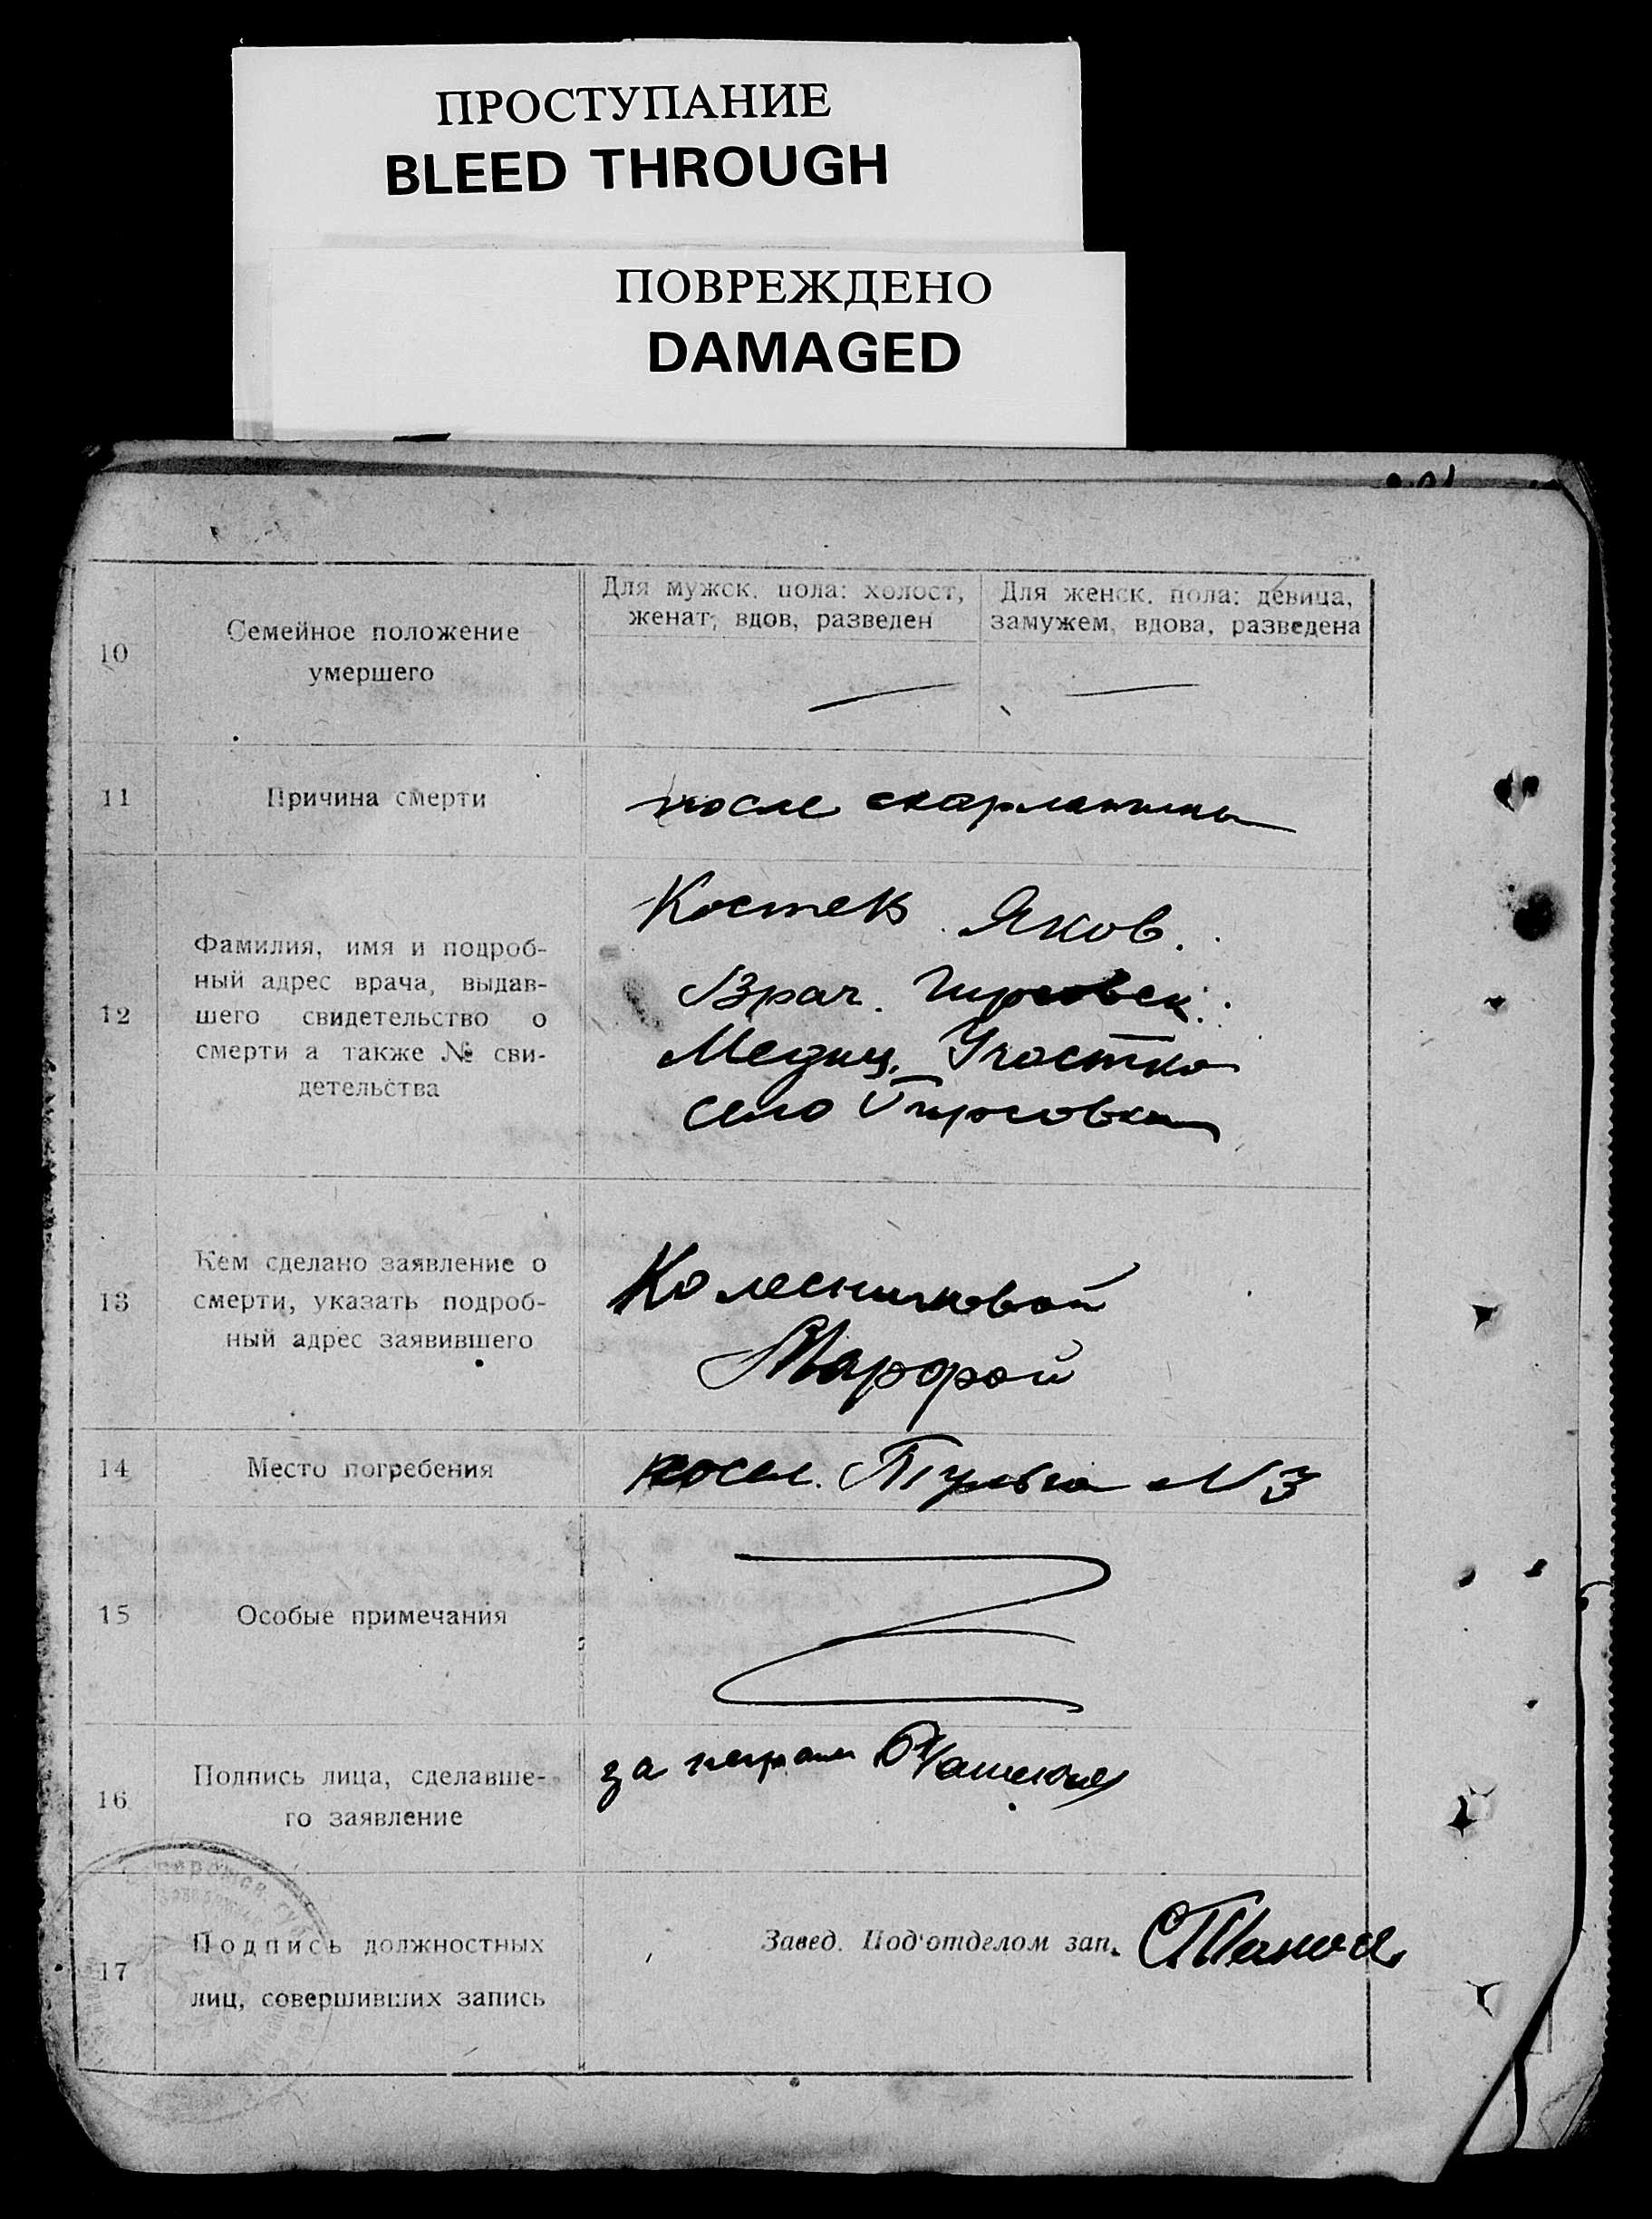 ПРОСТУПАНИЕ
BLEED THROUGH
ПОВРЕЖДЕНО
DAMAGED
10
Семейное положение
умершего
Для мужск. пола: холост,
женат, вдов, разведен
Для женск. пола: девица,
замужем, вдова, разведена
11
Причина смерти
после скарлатины
12
Фамилия, имя и подроб-
ный адрес врача, выдав-
шего свидетельство о
смерти а также № сви-
детельства
Костек Яков.
Врач.
Медиц. Участка
село
13
Кем сделано заявление о
смерти, указать подроб-
ный адрес заявившего
Колесниковой
Марфой
14
Место погребения
посел. N 3
15
Особые примечания
16
Подпись лица, сделавше-
го заявление
за
17
Подпись должностных
лиц, совершивших запись
Завед. Под'отделом зап.